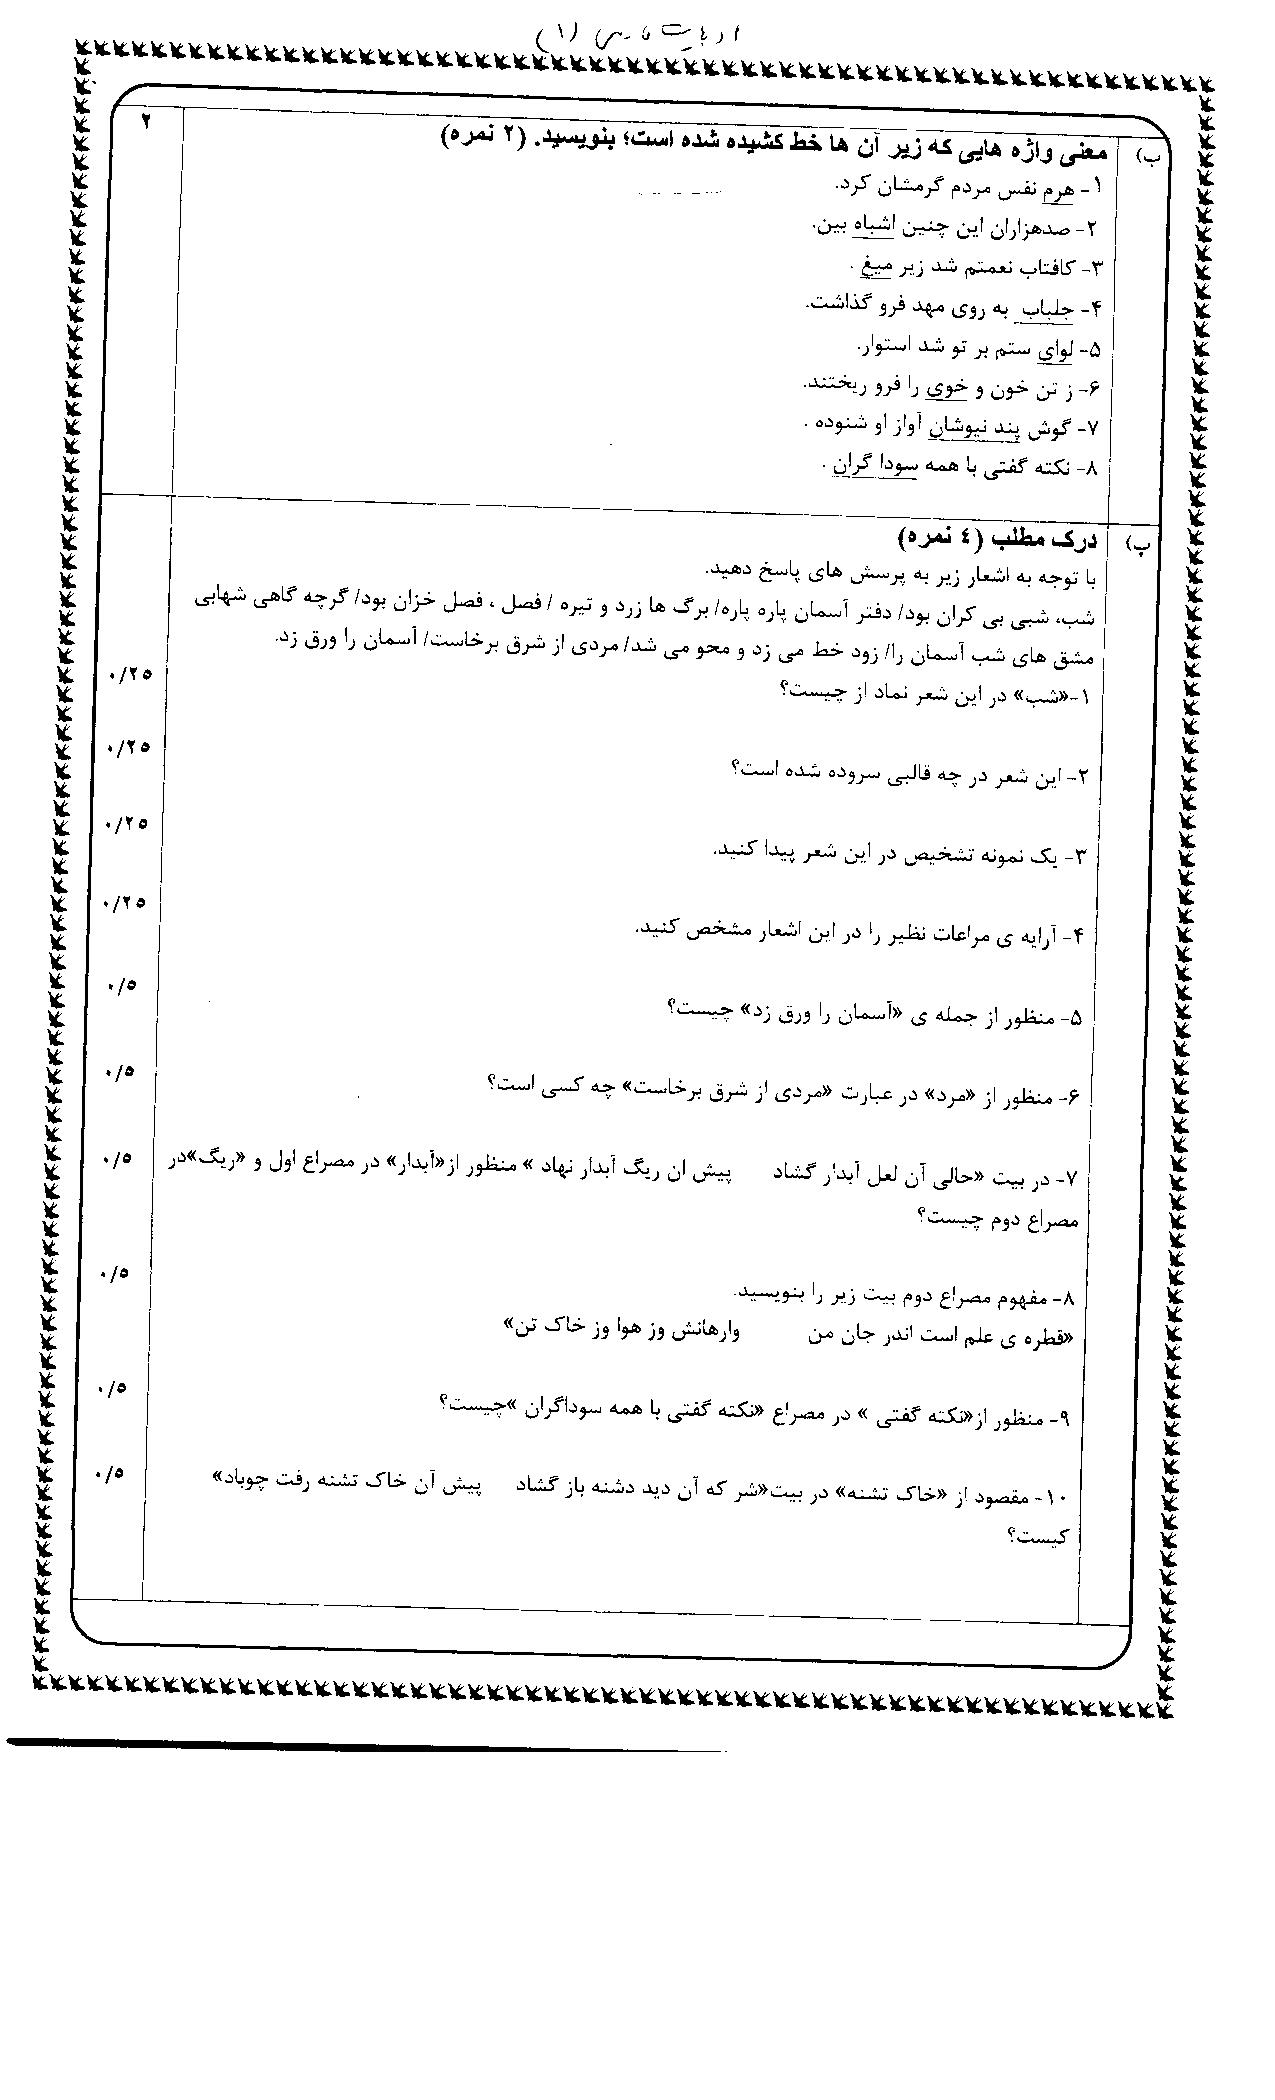 ادبیات فارسی (۱)
ب) معنی واژه هایی که زیر آن ها خط کشیده شده است؛ بنویسید. (۲ نمره) ۲
۱- هرم نفس مردم گرمشان کرد.
۲- صدهزاران این چنین اشباه بین.
۳- کافتاب نعمتم شد زیر میغ .
۴- جلباب به روی مهد فرو گذاشت.
۵- لوای ستم بر تو شد استوار.
۶- ز تن خون و خوی را فرو ریختند.
۷- گوش پند نیوشان آواز او شنوده .
۸- نکته گفتی با همه سودا گران .
پ) درک مطلب (٤ نمره)
با توجه به اشعار زیر به پرسش های پاسخ دهید.
شب، شبی بی کران بود/ دفتر آسمان پاره پاره/ برگ ها زرد و تیره /فصل ، فصل خزان بود/ گرچه گاهی شهابی
مشق های شب آسمان را/ زود خط می زد و محو می شد/ مردی از شرق برخاست/ آسمان را ورق زد.
۱-«شب» در این شعر نماد از چیست؟ ۰/۲۵
۲- این شعر در چه قالبی سروده شده است؟ ۰/۲۵
۳- یک نمونه تشخیص در این شعر پیدا کنید. ۰/۲۵
۴- آرایه ی مراعات نظیر را در این اشعار مشخص کنید. ۰/۲۵
۵- منظور از جمله ی «آسمان را ورق زد» چیست؟ ۰/۵
۶- منظور از «مرد» در عبارت «مردی از شرق برخاست» چه کسی است؟ ۰/۵
۷- در بیت «حالی آن لعل آبدار گشاد پیش ان ریگ آبدار نهاد » منظور از«آبدار» در مصراع اول و «ریگ»در ۰/۵
مصراع دوم چیست؟
۸- مفهوم مصراع دوم بیت زیر را بنویسید. ۰/۵
«قطره ی علم است اندر جان من وارهانش وز هوا وز خاک تن»
۹- منظور از«نکته گفتی » در مصراع «نکته گفتی با همه سوداگران »چیست؟ ۰/۵
۱۰- مقصود از «خاک تشنه» در بیت«شر که آن دید دشنه باز گشاد پیش آن خاک تشنه رفت چوباد» ۰/۵
کیست؟